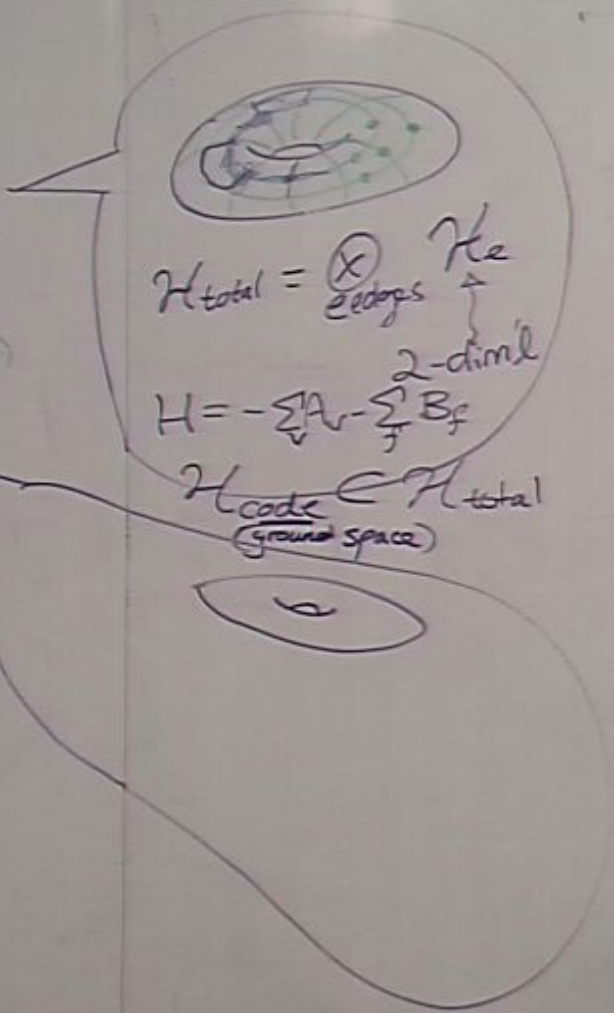 H_total = ⊗ H_e
e∈edges
2-dim'l
H = - Σ_v A_v - Σ_f B_f
H_code ⊂ H_total
(ground space)